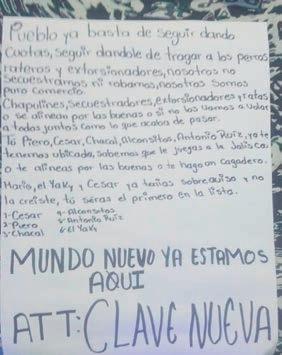 Pueblo ya basta de seguir dando
Cuotas, seguir dandole de tragar a los perros
rateros y extorsionadores, nosotros no
Secuestramos ni robamos, nosotros Somos
puro comercio.
Chapulines, Secuestradores, Extorsionadores y ratas
o se alinean por las buenas o si no los vamos a volar
a todos juntos como lo que acaba de pasar.
Tu Piero, Cesar, Chacal, Alconsitos, Antonio Ruiz, ya te
tenemos ubicado, sabemos que le juegas a la Jalisco
o te alineas por las buenas o te hago un Cagadero.
Mario, el Yaky y Cesar ya tenias sobre aviso y no
la creiste, tú serás el primero en la lista.
1-Cesar 4-Alconsitos
2-Piero 5-Antonio Ruiz
3-Chacal 6-El Yaky
MUNDO NUEVO YA ESTAMOS
AQUI
ATT: CLAVE NUEVA